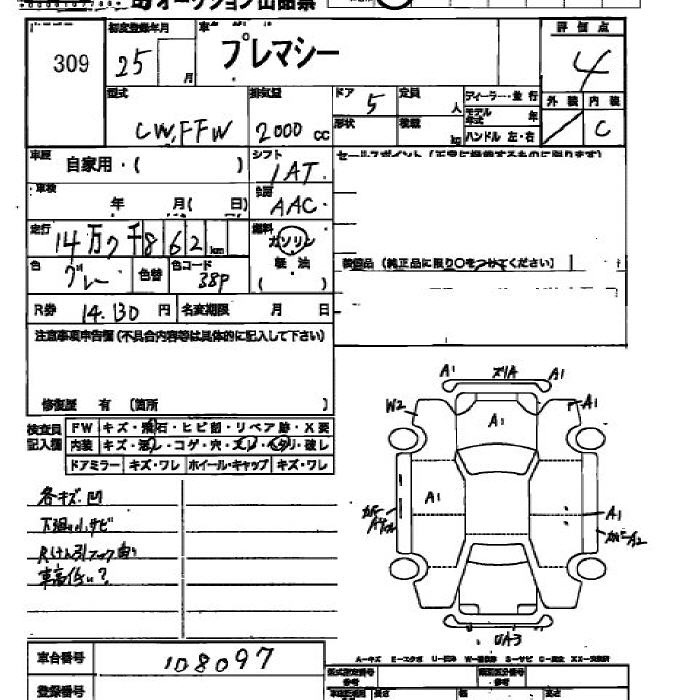 オークション出品票
309
初度登録年月
25
月
車名
プレマシー
評価点
4
外装 内装
C
型式
CWFFW
排気量
2000 CC
ドア
5
形状
定員
人
積載
kg
ディーラー・並行
モデル年式 年
ハンドル 左・右
車歴
自家用・( )
シフト
IAT
車検
年 月( 日)
冷房
AAC
セールスポイント(正常に機能するものに限ります)
走行
14万7千862km
燃料
ガソリン
軽油
( )
色
グレー
色替
色コード
38P
装備品(純正品に限り○をつけてください)
R券
14,130 円
名変期限
月 日
注意事項申告欄(不具合内容等は具体的に記入して下さい)
修復歴 有 (箇所 )
検査員記入欄
FW キズ・飛石・ヒビ割・リペア跡・X要
内装 キズ・汚レ・コゲ・穴・スレ・ヘタリ・破レ
ドアミラー キズ・ワレ ホイール・キャップ キズ・ワレ
各キズ凹
下廻り小サビ
Rけん引フック有り
車高低い?
A1
ズリA
A1
W2
A1
A1
A1
A1
A2
UA3
A-キズ E-エクボ U-凹み
車台番号
108097
登録番号
長さ
幅
高さ